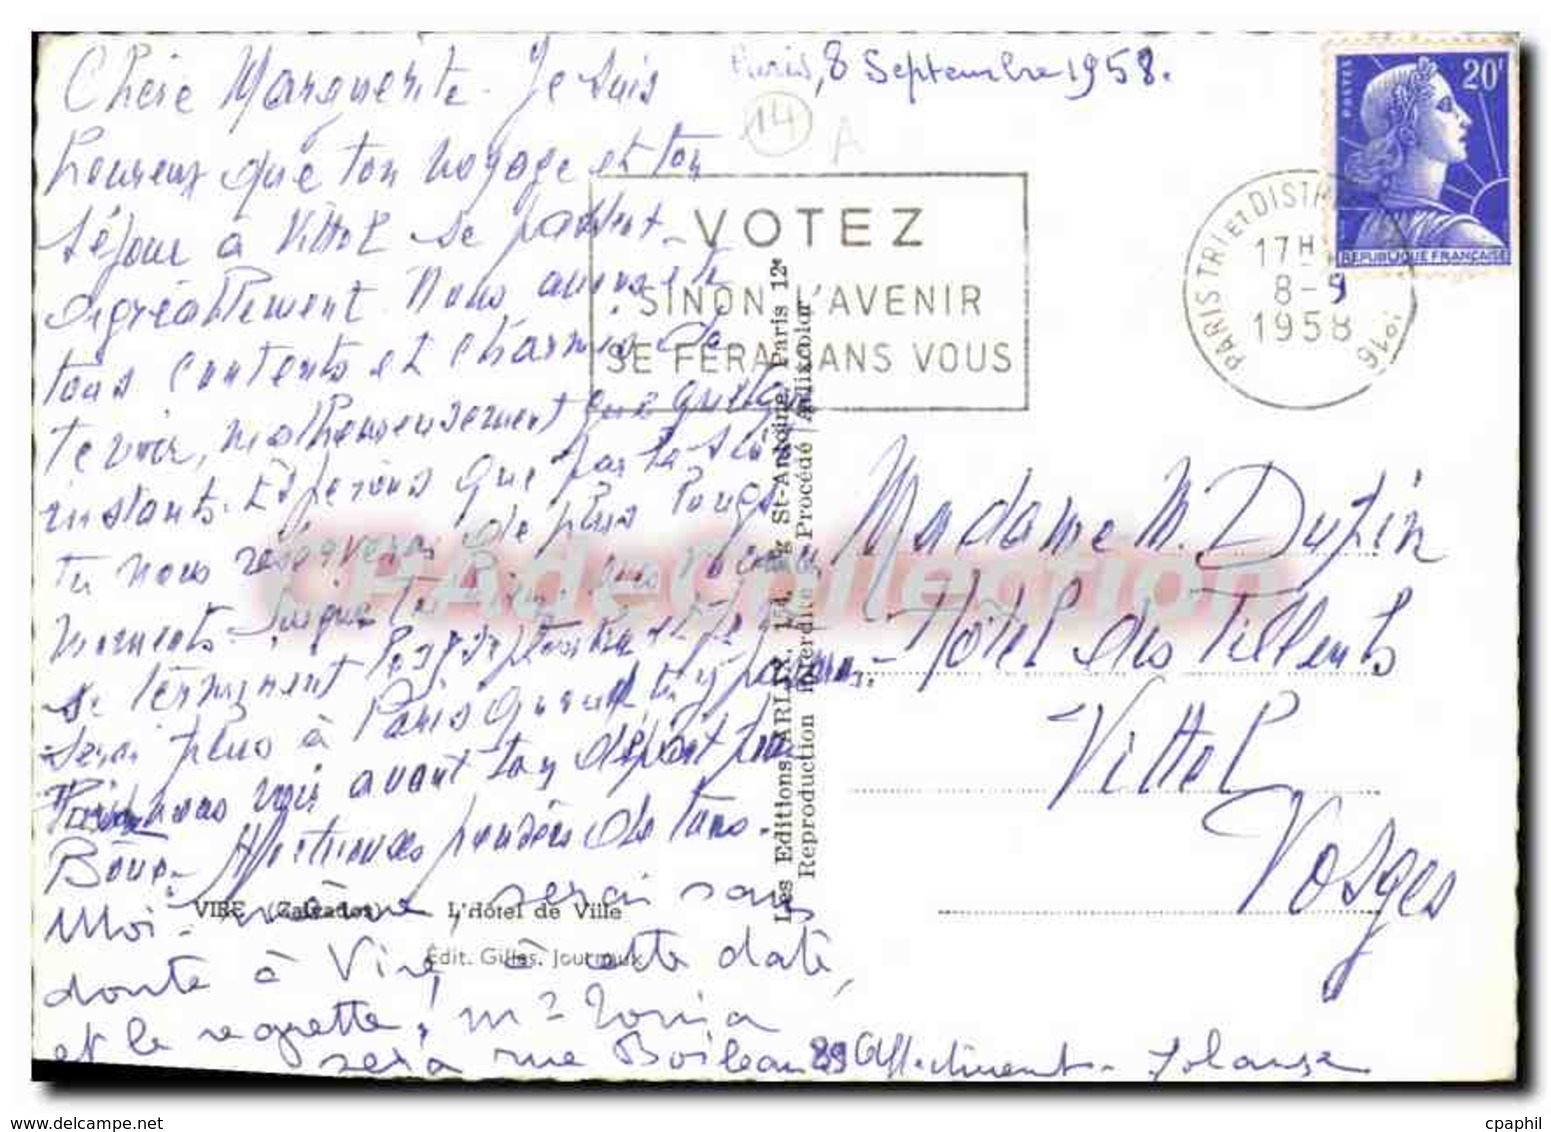 Paris, 8 Septembre 1958.
Chère Marguerite. Je suis
heureux que ton voyage et ton
séjour à Vittel se passent
agréablement. Nous avons été
tous contents et charmés de
te voir, malheureusement que quelques
instants. Espérons que par la suite
tu nous réserveras de plus longs
moments.
se terminent
serai plus à Paris quand tu y passeras.
nous vois avant ton départ pour
Bône. Affectueuses pensées de tous.
Moi-même, serai sans
doute à Vire, à cette date,
et le regrette! Mme Tonia
sera rue Boileau 89 Affectueusement. Solange
14
A
VOTEZ
SINON L'AVENIR
SE FERA SANS VOUS
PARIS TRI et DISTR
17H
8-9
1958
PARIS 16
POSTES
20F
REPUBLIQUE FRANÇAISE
Madame M. Dupin
Hôtel des Tilleuls
Vittel
Vosges
VIRE (Calvados) L'Hôtel de Ville
Edit. Gilles, Journaux
Les Editions "ARLIX", 151, Fg St-Antoine, Paris 12e
Reproduction Interdite Procédé Arlixcolor
CPAdeCollection
www.delcampe.net
cpaphil